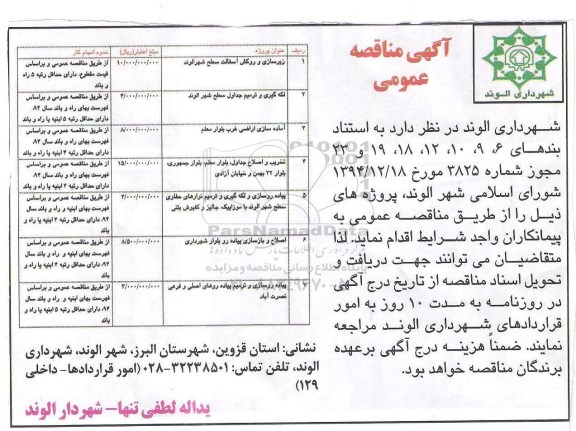 آگهی مناقصه
عمومی
شهرداری الوند
شهرداری الوند در نظر دارد به استناد
بندهای ۶، ۹، ۱۰، ۱۲، ۱۸، ۱۹ و ۲۳
مجوز شماره ۳۸۲۵ مورخ ۱۳۹۴/۱۲/۱۸
شورای اسلامی شهر الوند، پروژه های
ذیل را از طریق مناقصه عمومی به
پیمانکاران واجد شرایط اقدام نماید. لذا
متقاضیان می توانند جهت دریافت و
تحویل اسناد مناقصه از تاریخ درج آگهی
در روزنامه به مدت ۱۰ روز به امور
قراردادهای شهرداری الوند مراجعه
نمایند. ضمناً هزینه درج آگهی برعهده
برندگان مناقصه خواهد بود.
ردیف عنوان پروژه مبلغ اعتبار(ریال) نحوه انجام کار
۱ زیرسازی و روکش آسفالت سطح شهرالوند ۱۰/۰۰۰/۰۰۰/۰۰۰ از طریق مناقصه عمومی و براساس
قیمت مقطوع، دارای حداقل رتبه ۵ راه
و باند
۲ لکه گیری و ترمیم جداول سطح شهر الوند ۴/۰۰۰/۰۰۰/۰۰۰ از طریق مناقصه عمومی و براساس
فهرست بهای راه و باند سال ۹۴،
دارای حداقل رتبه ۵ ابنیه یا راه و باند
۳ آماده سازی اراضی غرب بلوار معلم ۸/۰۰۰/۰۰۰/۰۰۰ از طریق مناقصه عمومی و براساس
فهرست بهای راه و باند سال ۹۴،
دارای حداقل رتبه ۴ ابنیه یا راه و باند
۴ تخریب و اصلاح جداول، بلوار معلم، بلوار جمهوری،
بلوار ۲۲ بهمن و خیابان آزادی ۱۵/۰۰۰/۰۰۰/۰۰۰ از طریق مناقصه عمومی و براساس
فهرست بهای ابنیه و راه و باند سال
۹۴، دارای حداقل رتبه ۴ ابنیه یا راه و
باند
۵ پیاده روسازی و لکه گیری و ترمیم نوارهای حفاری
سطح شهر الوند با موزاییک، جالیز و کفپوش بتنی ۳/۰۰۰/۰۰۰/۰۰۰ از طریق مناقصه عمومی و براساس
فهرست بهای ابنیه و راه و باند سال
۹۴، دارای حداقل رتبه ۵ ابنیه یا راه و
باند
۶ اصلاح و بازسازی پیاده رو بلوار شهرداری ۸/۵۰۰/۰۰۰/۰۰۰ از طریق مناقصه عمومی و براساس
فهرست بهای ابنیه و راه و باند سال
۹۴، دارای حداقل رتبه ۴ ابنیه یا راه و
باند
۷ پیاده روسازی و ترمیم پیاده روهای اصلی و فرعی
نصرت آباد ۳/۰۰۰/۰۰۰/۰۰۰ از طریق مناقصه عمومی و براساس
فهرست بهای ابنیه و راه و باند سال
۹۴، دارای حداقل رتبه ۵ ابنیه یا راه و
باند
ParsNamadData
پایگاه اطلاع رسانی مناقصه و مزایده
نشانی: استان قزوین، شهرستان البرز، شهر الوند، شهرداری
الوند، تلفن تماس: ۳۲۲۳۸۵۰۱-۰۲۸ (امور قراردادها- داخلی
۱۲۹)
یداله لطفی تنها- شهردار الوند